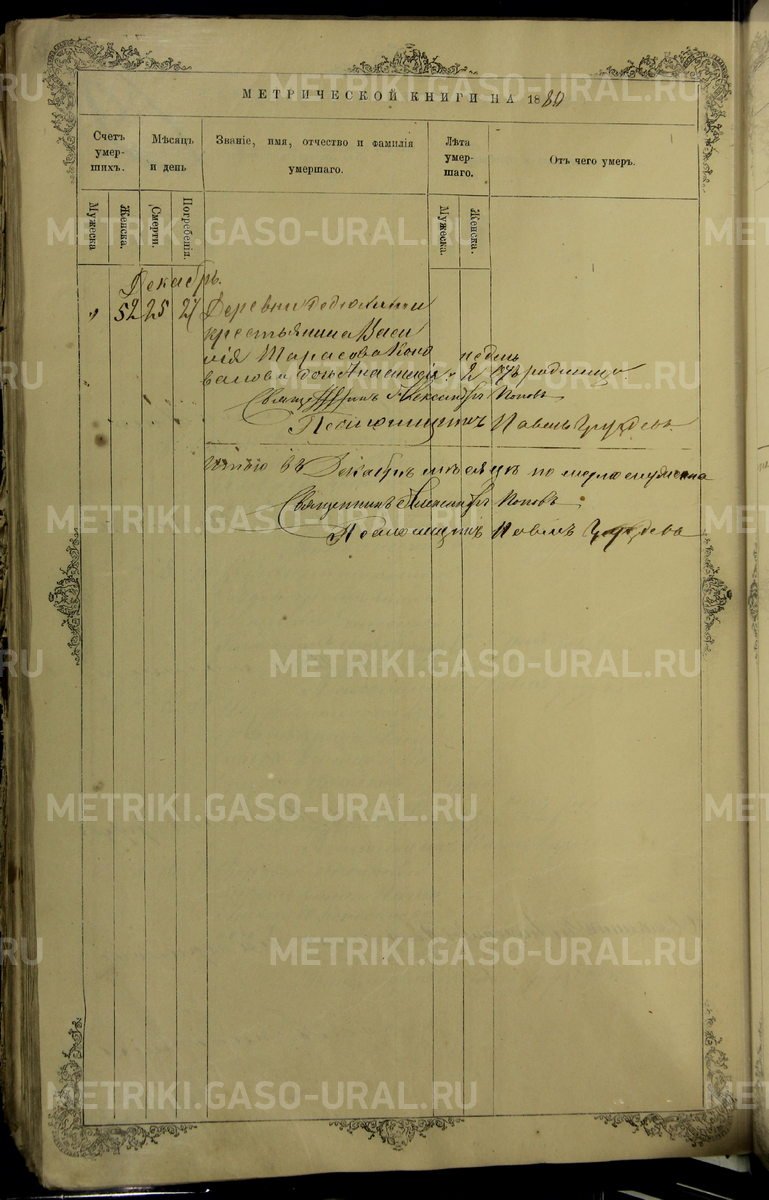 МЕТРИЧЕСКОЙ КНИГИ НА 1880
Счетъ умер-шихъ.
Мѣсяцъ и день
Званіе, имя, отчество и фамилія умершаго.
Лѣта умер-шаго.
Отъ чего умеръ.
Мужеска
Женска.
Смерти.
Погребенія.
Мужеска.
Женска.
Декабрь.
" 52 25 27 Деревни
крестьянина Васи
лія Тарасова Коно
валова дочь Анастасія 2 недель родимца.
Священникъ Александръ Поповъ
Псаломщикъ Павелъ Груздевъ
Итого въ Декабрѣ мѣсяцѣ померло
Священникъ Александръ Поповъ
Псаломщикъ Павелъ Груздевъ
METRIKI.GASO-URAL.RU